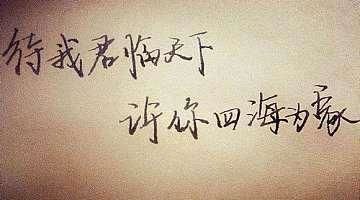 待我君临天下
许你四海为家